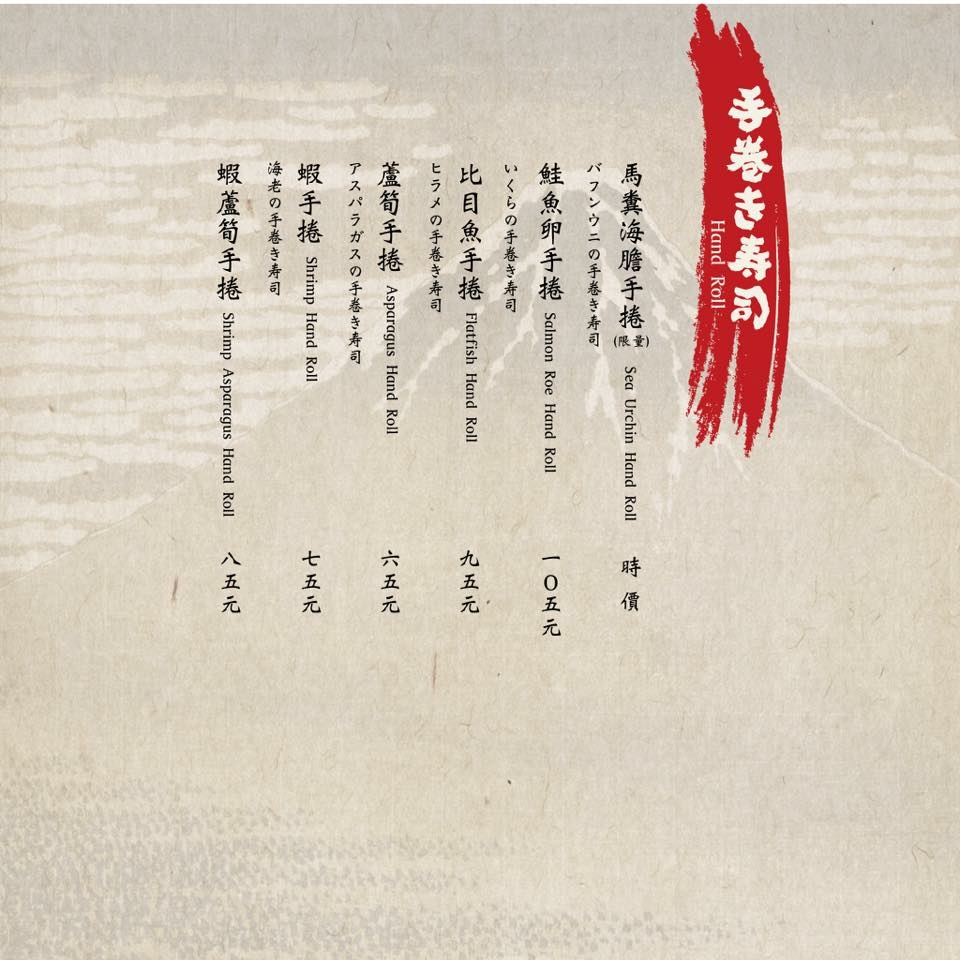 手巻き寿司
Hand Roll
馬糞海膽手捲(限量) Sea Urchin Hand Roll 時價
バフンウニの手巻き寿司
鮭魚卵手捲 Salmon Roe Hand Roll 一〇五元
いくらの手巻き寿司
比目魚手捲 Flatfish Hand Roll 九五元
ヒラメの手巻き寿司
蘆筍手捲 Asparagus Hand Roll 六五元
アスパラガスの手巻き寿司
蝦手捲 Shrimp Hand Roll 七五元
海老の手巻き寿司
蝦蘆筍手捲 Shrimp Asparagus Hand Roll 八五元